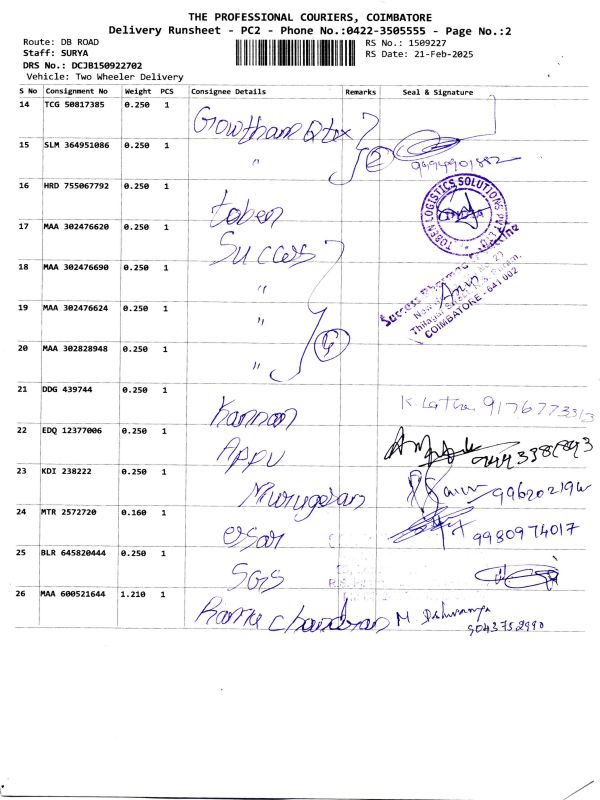 THE PROFESSIONAL COURIERS, COIMBATORE
Delivery Runsheet - PC2 - Phone No.:0422-3505555 - Page No.:2
Route: DB ROAD
RS No.: 1509227
Staff: SURYA
RS Date: 21-Feb-2025
DRS No.: DCJB150922702
Vehicle: Two Wheeler Delivery
S No Consignment No Weight PCS Consignee Details Remarks Seal & Signature
14 TCG 50817385 0.250 1 Gowtham
15 SLM 364951086 0.250 1 " 2 9994901882
16 HRD 755067792 0.250 1 toben TOBEN LOGISTICS SOLUTIONS PVT LTD
17 MAA 302476620 0.250 1 Success
18 MAA 302476690 0.250 1 " Success
19 MAA 302476624 0.250 1 " COIMBATORE - 641 002
20 MAA 302828948 0.250 1 " 4
21 DDG 439744 0.250 1 Kannan K. Latha 9176773313
22 EDQ 12377006 0.250 1 Appu
23 KDI 238222 0.250 1 Murugesan
24 MTR 2572720 0.160 1 essar 9980974017
25 BLR 645820444 0.250 1 SGS
26 MAA 600521644 1.210 1 Rama chandran M 9043752990